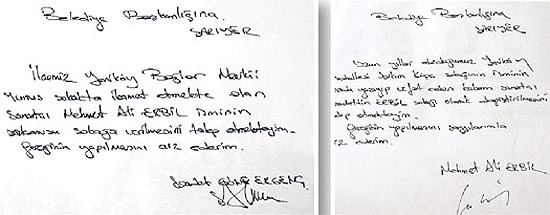 Belediye Başkanlığına
SARIYER
İlçemiz Yeniköy Bağlar Mevkii
Yunus sokakta ikamet etmekte olan
Sanatçı Mehmet Ali ERBİL isminin
sokağa verilmesini talep etmekteyim.
Gereğinin yapılmasını arz ederim.
ERGENÇ
Belediye Başkanlığına
SARIYER
Uzun yıllar oturduğumuz Yeniköy
sokağının isminin
vefat eden babam sanatçı
Sadettin ERBİL sokağı olarak değiştirilmesini
talep etmekteyim.
Gereğinin yapılmasını saygılarımla
arz ederim.
Mehmet Ali ERBİL